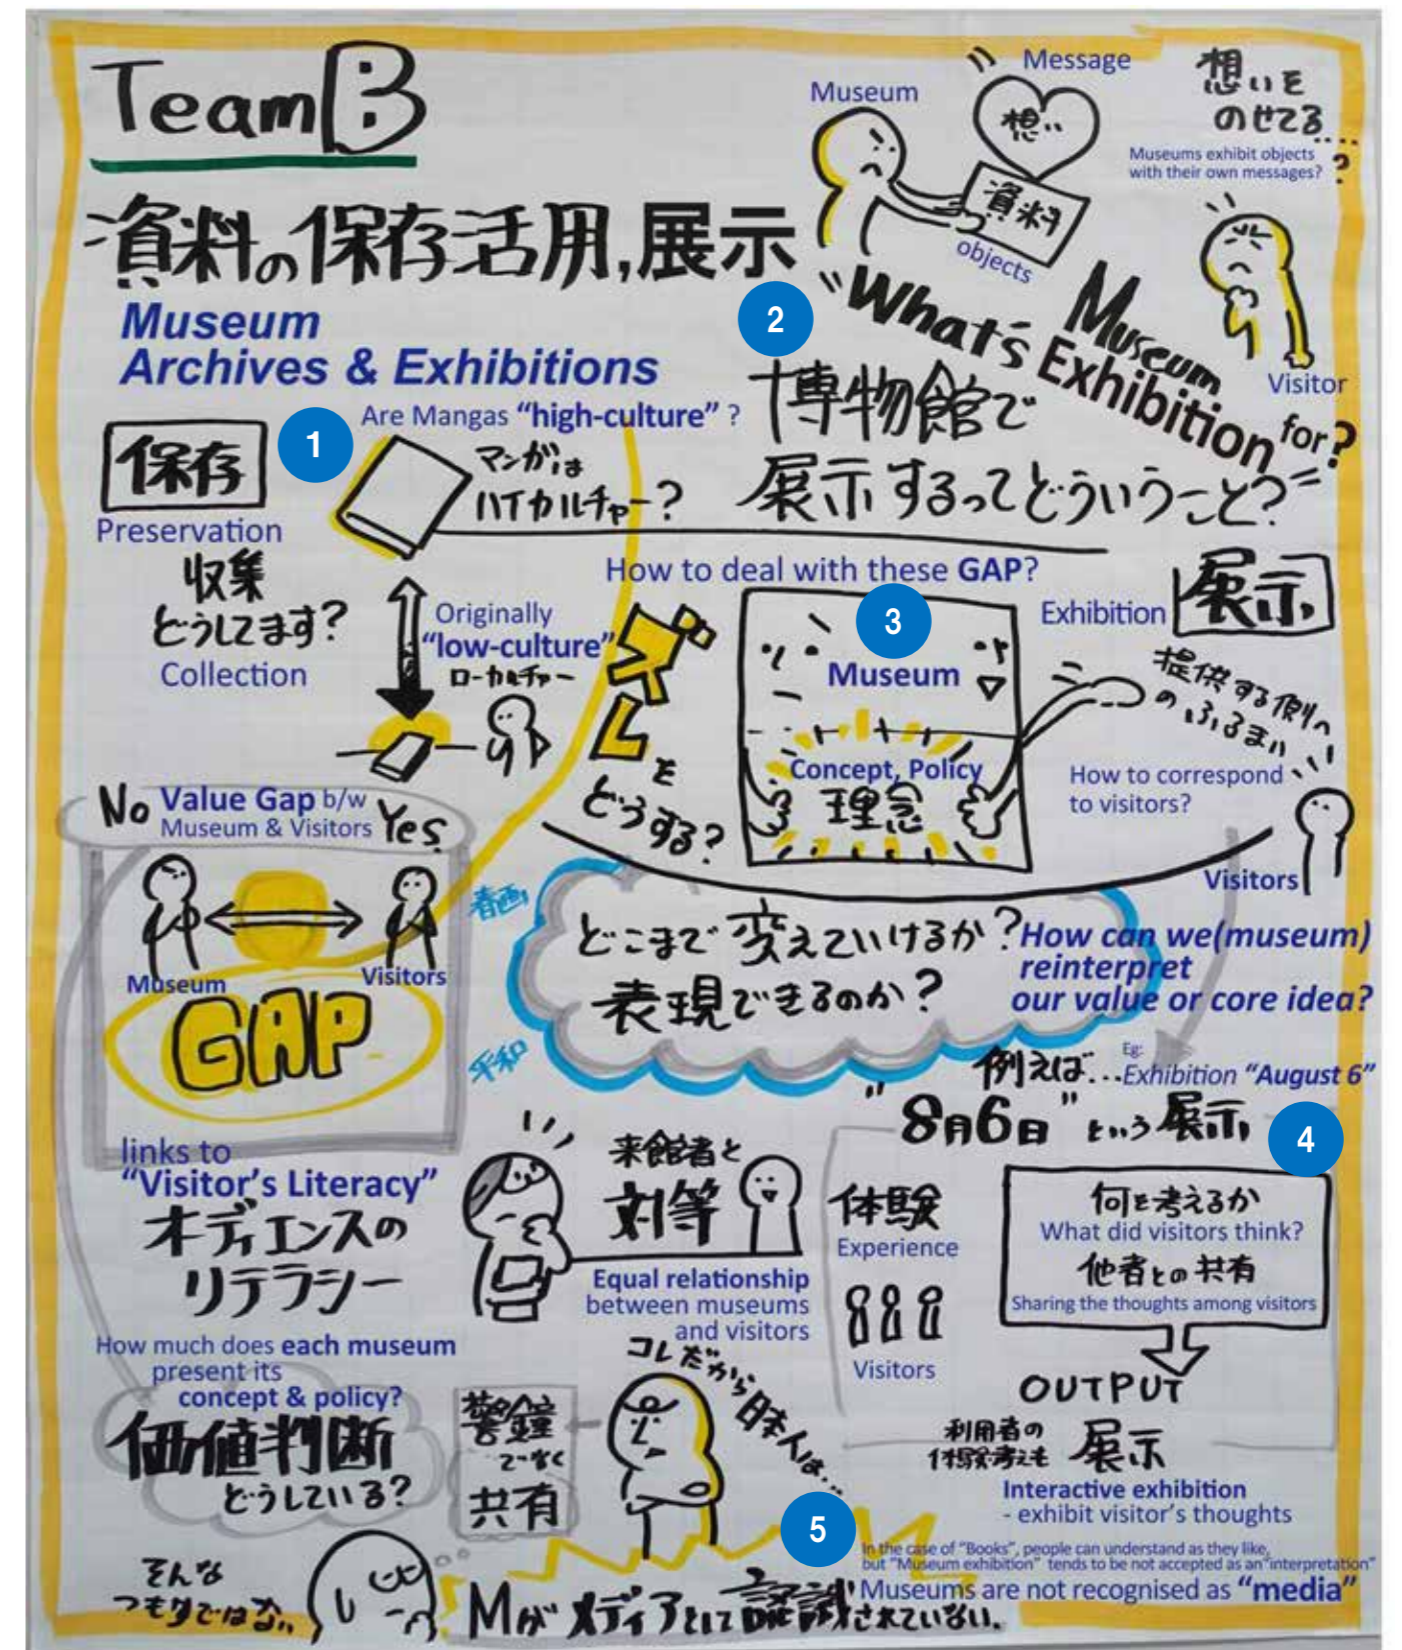 Team B
資料の保存活用,展示
Museum
Archives & Exhibitions
Museum
Message
想い
資料
objects
想いを
のせてる....?
Museums exhibit objects
with their own messages?
Visitor
2
"What's Museum
Exhibition for?"
博物館で
展示するってどういうこと?
保存
Preservation
収集
どうしてます?
Collection
1
Are Mangas "high-culture" ?
マンガは
ハイカルチャー?
Originally
"low-culture"
ローカルチャー
How to deal with these GAP?
ズレを
どうする?
3
Museum
Concept, Policy
理念
Exhibition
展示
提供する側の
ふるまい
How to correspond
to visitors?
Visitors
No
Value Gap b/w
Museum & Visitors
Yes
Museum
Visitors
GAP
春画
平和
どこまで変えていけるか?
表現できるのか?
How can we(museum)
reinterpret
our value or core idea?
例えば...
Eg:
Exhibition "August 6"
"8月6日"という展示
4
links to
"Visitor's Literacy"
オーディエンスの
リテラシー
来館者と
対等
Equal relationship
between museums
and visitors
体験
Experience
Visitors
何を考えるか
What did visitors think?
他者との共有
Sharing the thoughts among visitors
OUTPUT
利用者の
体験・考えも
展示
Interactive exhibition
- exhibit visitor's thoughts
How much does each museum
present its
concept & policy?
価値判断
どうしている?
警鐘
でなく
共有
コレだから日本人は...
5
そんな
つもりではない..
In the case of "Books", people can understand as they like,
but "Museum exhibition" tends to be not accepted as an"interpretation"
Museums are not recognised as "media"
Mがメディアとして認識されていない.